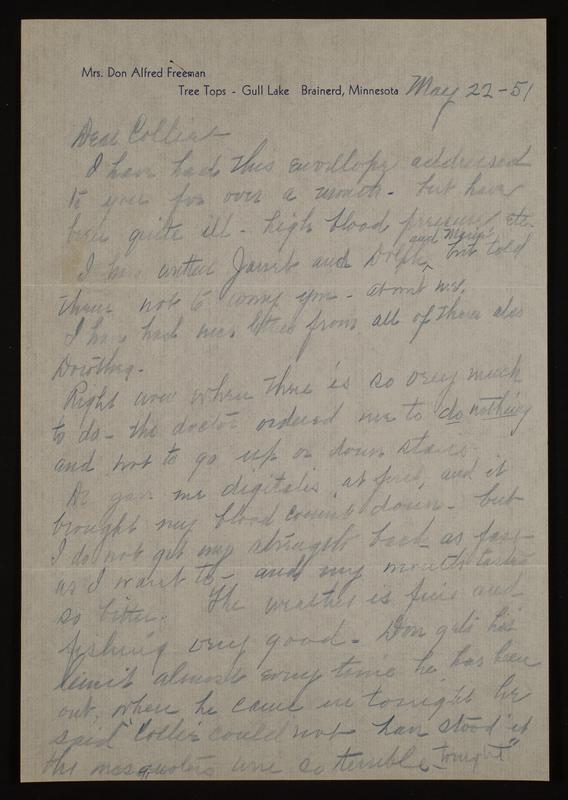 Mrs. Don Alfred Freeman
Tree Tops - Gull Lake Brainerd, Minnesota May 22-51
Dear Collier
I have had this envellope addressed
to you for over a month - but have
been quite ill - high blood pressure etc.
I have written Jarret and Dolph and Marge but told
them not to worry you - about me.
I have had nice letters from all of them also
Dorothy.
Right now when there is so very much
to do - the doctor ordered me to do nothing
and not to go up or down stairs
He gave me digitalis, at first, and it
brought my blood count down - but
I do not get my strength back as fast
as I want to - and my mouth tastes
so bitter. The weather is fine and
fishing very good - Don gets his
limit almost every time he has been
out, when he came in tonight he
said "Collier could not have stood it
the mosquitoes were so terrible tonight"